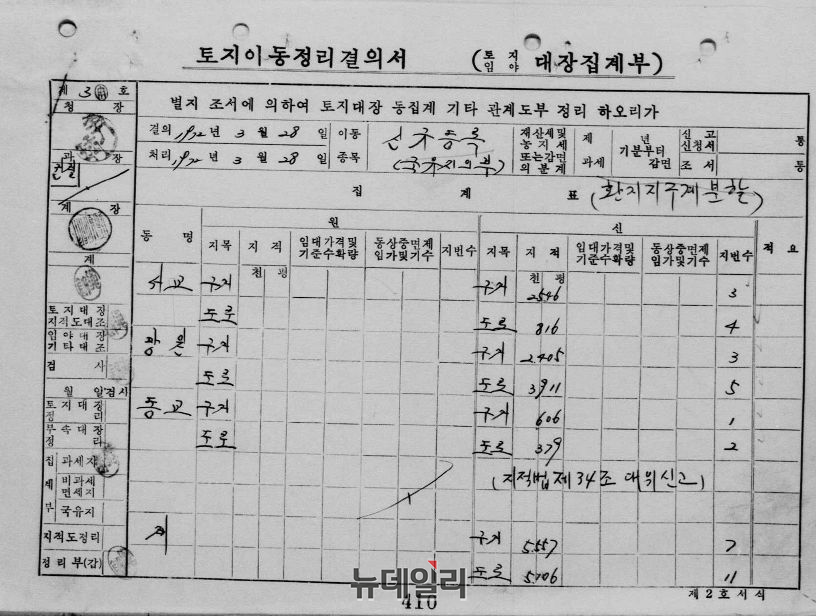 토지이동정리결의서 (토지 임야 대장집계부)
제 3 호
청 장
별지 조서에 의하여 토지대장 동집계 기타 관계도부 정리 하오리가
결의 1972 년 3 월 28 일 이동
신규등록
재산세및 농지세 또는감면의 분계
제
과세
년
기분부터
감면
신고
신청서
통
처리 1972 년 3 월 28 일 종목
(국유지의부)
조서
통
과 장
집 계 표 (환지지구계분할)
계 장
원
신
동 명
지목
지 적
임대가격및 기준수확량
동상중면제 입가및기수
지번수
지목
지 적
임대가격및 기준수확량
동상중면제 입가및기수
지번수
적 요
계
천 평
천 평
서교 구지 구지 2546 3
도로 도로 816 4
토지대장
지적도대조
임야대장
기타대조
구지 구지 2.405 3
검 사
도로 도로 3911 5
월 일 검시
토지대장
정 리
동교 구지 구지 606 1
부속대장
정 리
도로 도로 379 2
집 계 부
과세지
비과세
면세지
국유지
(지적법제34조 대위신고)
지적도정리
계 구지 5.557 7
정리부(갑)
도로 5.106 11
뉴데일리
410
제2호서식